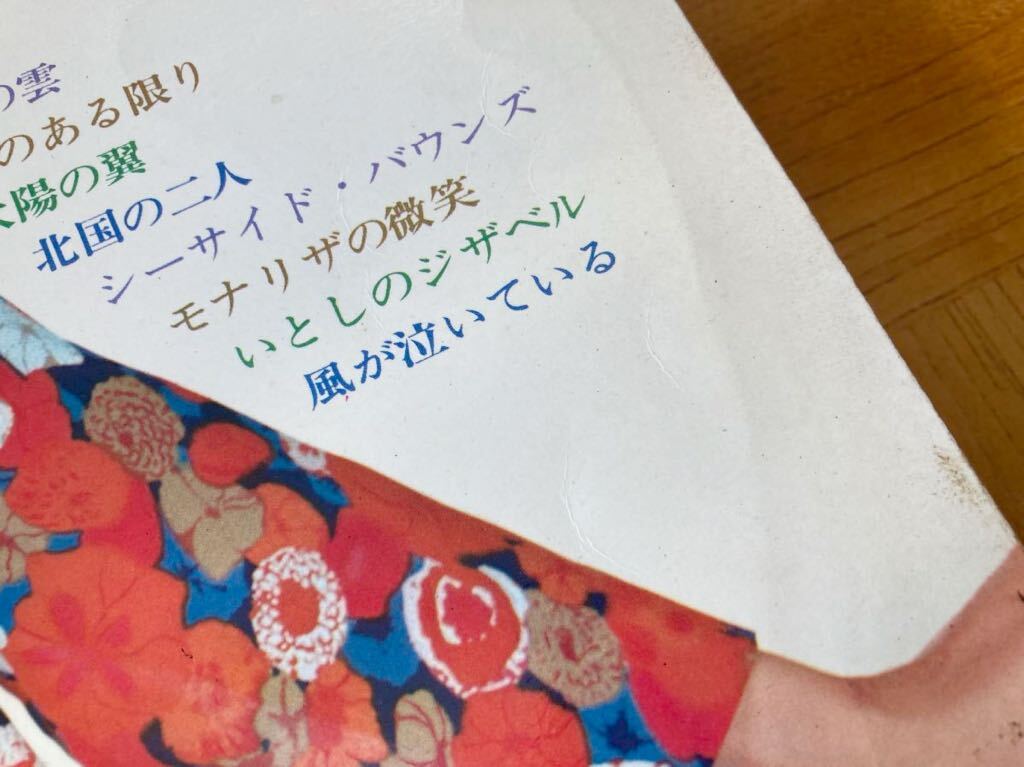 の雲
のある限り
太陽の翼
北国の二人
シーサイド・バウンズ
モナリザの微笑
いとしのジザベル
風が泣いている